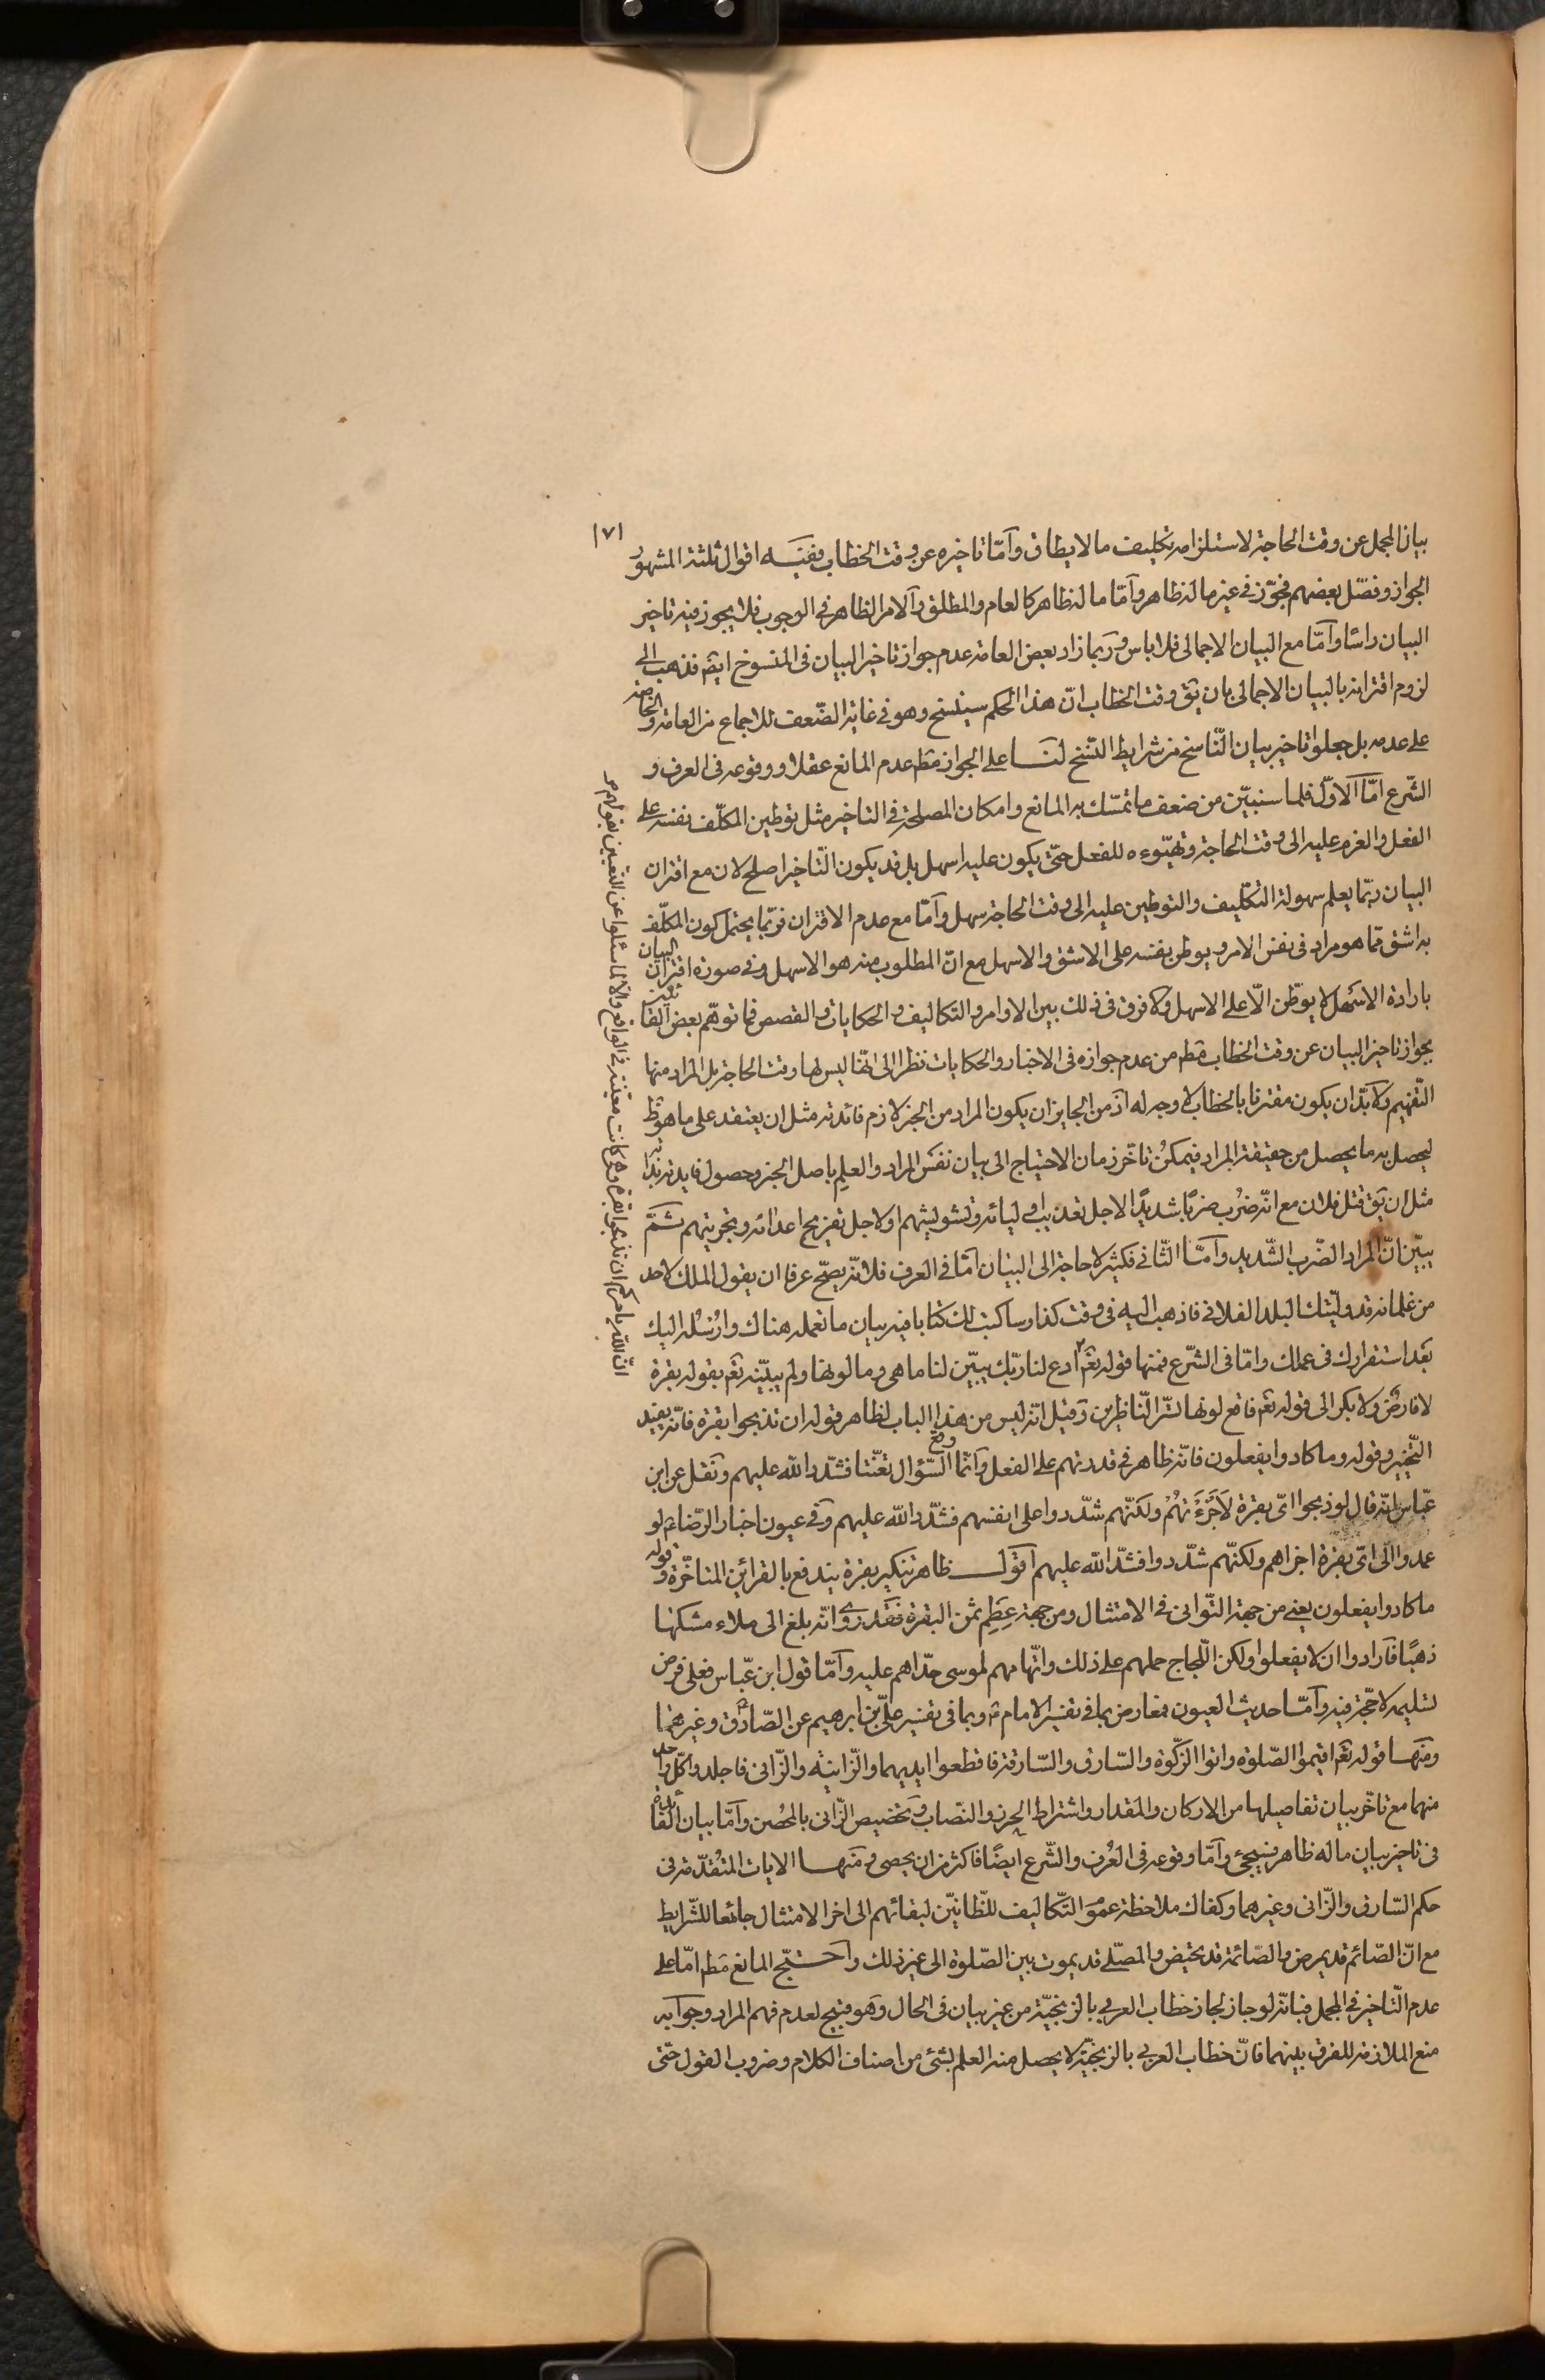 ١٧١
بيان المجمل عن وقت الحاجة لاستلزامه تكليف ما لا يطاق وامّا تاخيره عن وقت الخطاب ففيه اقوال ثلثة المشهور
الجواز وفصّل بعضهم فجوّز في غير ما له ظاهر وامّا ما له ظاهر كالعام والمطلق والامر الظاهر في الوجوب فلا يجوز فيه تاخير
البيان راسًا وامّا مع البيان الاجمالي فلا باس وربما زاد بعض العامة عدم جواز تاخير البيان في المنسوخ ايضم فذهب الى
لزوم اقترانه بالبيان الاجمالي بان يق وقت الخطاب انّ هذا الحكم سينسخ وهو في غاية الضّعف للاجماع من العامة والخاصة
على عدمه بل جعلوا تاخير بيان النّاسخ من شرايط النّسخ لنا على الجواز مطم عدم المانع عقلا ووقوعه في العرف و
الشّرع امّا الاوّل فلما سنبيّن من ضعف ما تمسّك به المانع وامكان المصلحة في التاخير مثل توطين المكلّف نفسه على
الفعل والعزم عليه الى وقت الحاجة وتهيّوءه للفعل حتّى يكون عليه اسهل بل قد يكون التّاخير اصلح لان مع اقتران
البيان ربّما يعلم سهولة التكليف والتوطين عليه الى وقت الحاجة سهل وامّا مع عدم الاقتران فربّما يحتمل كون المكلّف
به اشق ممّا هو مراد في نفس الامر ويوطن نفسه على الاشق والاسهل مع انّ المطلوب منه هو الاسهل وفي صورة اقتران البيان
بارادة الاسهل لا يوطّن الّا على الاسهل ولا فرق في ذلك بين الاوامر والتكاليف والحكايات والقصص فما توهّم بعض القائلين
بجواز تاخير البيان عن وقت الخطاب مطم من عدم جوازه في الاخبار والحكايات نظرا الى انّها ليس لها وقت الحاجة بل المراد منها
التّفهيم ولا بدّ ان يكون مقترنا بالخطاب لا وجه له اذ من الجايز ان يكون المراد من الخبر لازم فائدته مثل ان يعتقد على ما هو ظ
ليحصل به ما يحصل من حقيقة المراد فيمكن تاخّر زمان الاحتياج الى بيان نفس المراد والعلم باصل الخبر وحصول فايدته بذاته
مثل ان يق قتل فلان مع انّه ضُرب ضربًا شديدًا لاجل تعذيب اوليائه وتشويشهم او لاجل تفريح اعدائه وتجريتهم ثمّ
يبيّن انّ المراد الضّرب الشّديد وامّا الثّاني فكثير لا حاجة الى البيان امّا في العرف فلانّه يصحّ عرفا ان يقول الملك لاحد
من غلمانه قد وليّتك البلد الفلاني فاذهب اليه في وقت كذا وساكتب لك كتابا فيه بيان ما تعمله هناك وارسُله اليك
بعد استقرارك في عملك وامّا في الشّرع فمنها قوله تعم ادع لنا ربّك يبيّن لنا ما هي وما لونها ولم يبيّنه تعم بقوله بقرة
لا فارض ولا بكر الى قوله تعم فاقع لونها تسرّ النّاظرين وقيل انّه ليس من هذا الباب لظاهر قوله ان تذبحوا بقرة فانّه يفيد
التّخيير وقوله وما كادوا يفعلون فانّه ظاهر في قدرتهم على الفعل وانّما وقع السّؤال تعنّتا فشدّد الله عليهم ونقل عن ابن
عبّاس انّه قال لو ذبحوا ايّ بقرة لاجزءتهُم ولكنّهم شدّدوا على انفسهم فشدّد الله عليهم وفي عيون اخبار الرّضاء لو
عمدوا الى ايّ بقرة اجزاهم ولكنّهم شدّدوا فشدّد الله عليهم اقول ظاهر تنكير بقرة يندفع بالقرائن المتاخّرة وقوله
ما كادوا يفعلون يعني من جهة التّواني في الامتثال ومن جهة عِظم ثمن البقرة فقد روى انّه بلغ الى ملاء مسكها
ذهبًا فارادوا ان لا يفعلوا ولكن اللّجاج حملهم على ذلك واتّهامهم لموسى حدّاهم عليه وامّا قول ابن عبّاس فعلى فرض
تسليمه لا حجّة فيه وامّا حديث العيون فمعارض بما في تفسير الامام ع وبما في تفسير عليّ بن ابرهيم عن الصّادق وغيرهما
ومنها قوله تعم اقيموا الصّلوة واتوا الزّكوة والسّارق والسّارقة فاقطعوا ايديهما والزّانية والزّاني فاجلدوا كلّ واحد
منهما مع تاخّر بيان تفاصيلها من الاركان والمقدار واشتراط الحرز والنّصاب وتخصيص الزّاني بالمحصن وامّا بيان الفائدة
في تاخير بيان ما له ظاهر فسيجئ وامّا وقوعه في العُرف والشّرع ايضًا فاكثر من ان يحصى ومنها الايات المتقدّمة في
حكم السّارق والزّاني وغيرهما وكفاك ملاحظة عموم التّكاليف للظّانّين لبقائهم الى اخر الامتثال جامعًا للشّرايط
مع انّ الصّائم قد يمرض والصّائمة قد تحيض والمصلّي قد يموت بين الصّلوة الى غير ذلك واحتجّ المانع مطم امّا على
عدم التّاخير في المجمل فبانّه لو جاز لجاز خطاب العربي بالزنجيّة من غير بيان في الحال وهو قبيح لعدم فهم المراد وجوابه
منع الملازمة للفرق بينهما فانّ خطاب العربي بالزنجيّة لا يحصل منه العلم بشئ من اصناف الكلام وضروب القول حتّى
انّ الله يامركم ان تذبحوا بقرة وكانت معيّنة في الواقع والّا لما سئلوا عن التّعيين بقولهم